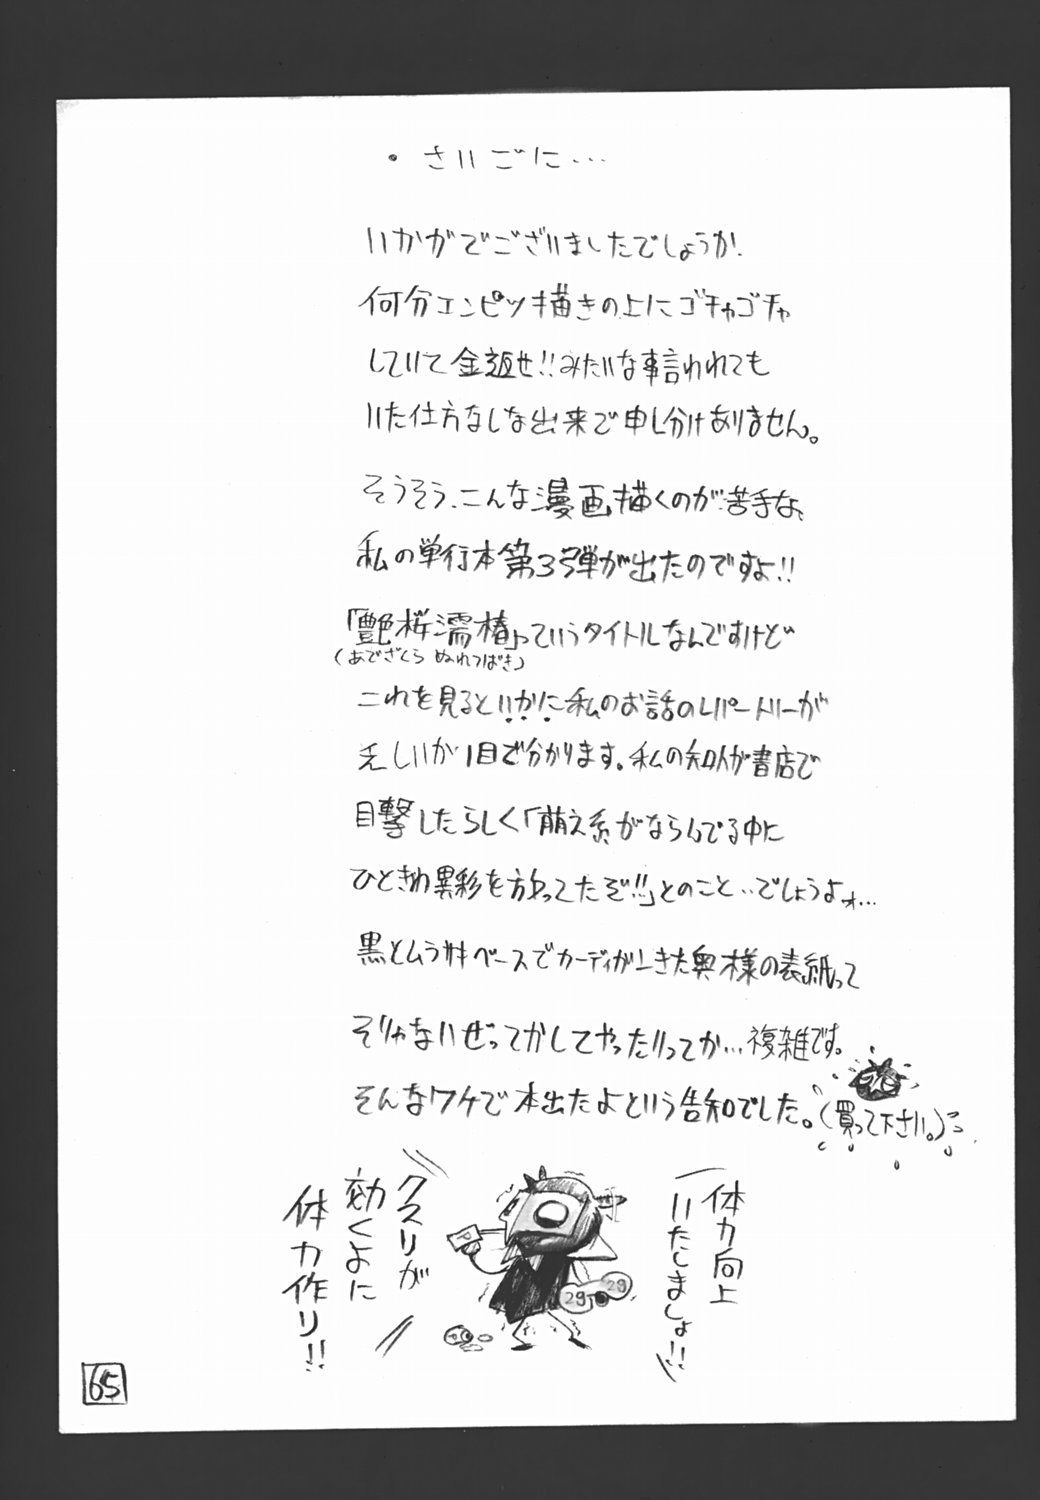 ・さいごに…
いかがでございましたでしょうか.
何分エンピツ描きの上にゴチャゴチャ
していて金返せ!!みたいな事言われても
いた仕方なしな出来で申し分けありません。
そうそう、こんな漫画描くのが苦手な、
私の単行本第3弾が出たのですよ!!
「艶桜濡椿」っていうタイトルなんですけど
(あでざくら ぬれつばき)
これを見るといかに私のお話のレパートリーが
乏しいか1目で分かります。私の知人が書店で
目撃したらしく「萌え系がならんでる中に
ひときわ異彩を放ってたぞ!!」とのこと‥でしょうよォ…
黒とムラサキベースでカーディガンきた奥様の表紙って
そりゃないぜってかしてやったりってか…複雑です。
そんなワケで本出たよという告知でした。(買って下さい。)
体力向上
いたしましょ!!
クスリが
効くよに
体力作り!!
P
29
29
65